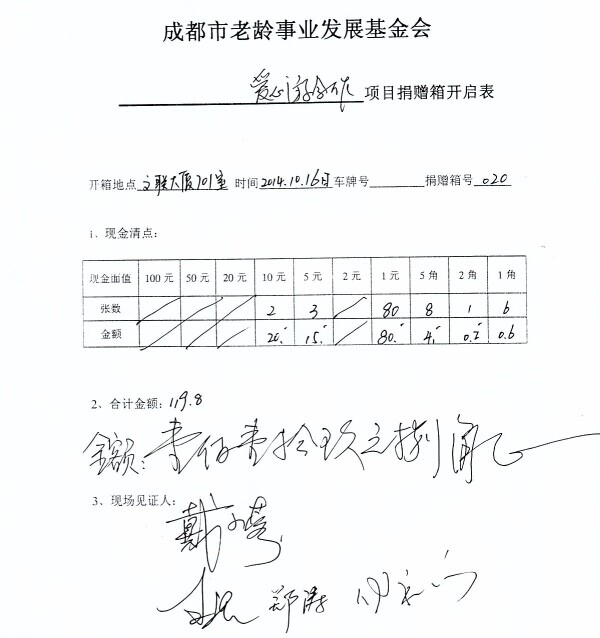 成都市老龄事业发展基金会
爱心 项目捐赠箱开启表
开箱地点 文联大厦701室 时间 2014.10.16日 车牌号 捐赠箱号 020
1、现金清点：
现金面值 100元 50元 20元 10元 5元 2元 1元 5角 2角 1角
张数 2 3 80 8 1 6
金额 20. 15. 80. 4. 0.2 0.6
2、合计金额：119.8
金额：壹佰壹拾玖元捌角
3、现场见证人：
戴
郑